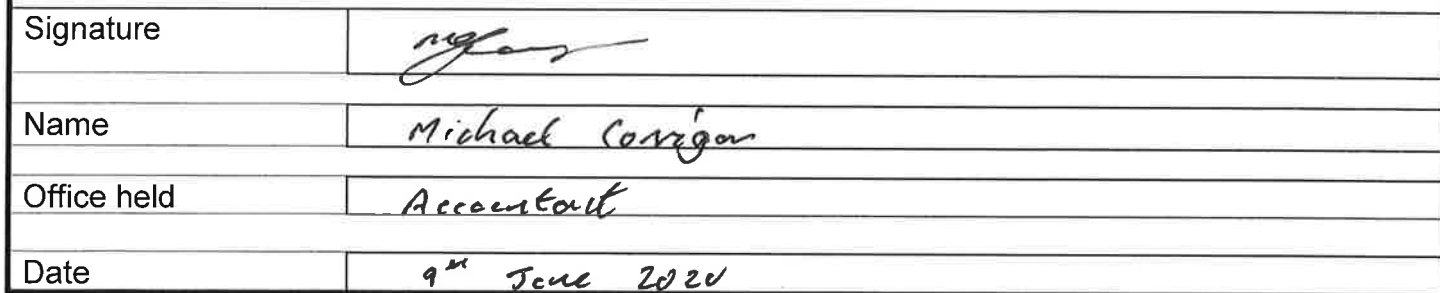 Signature
Name Michael Corrigan
Office held Accountant
Date 9th June 2020